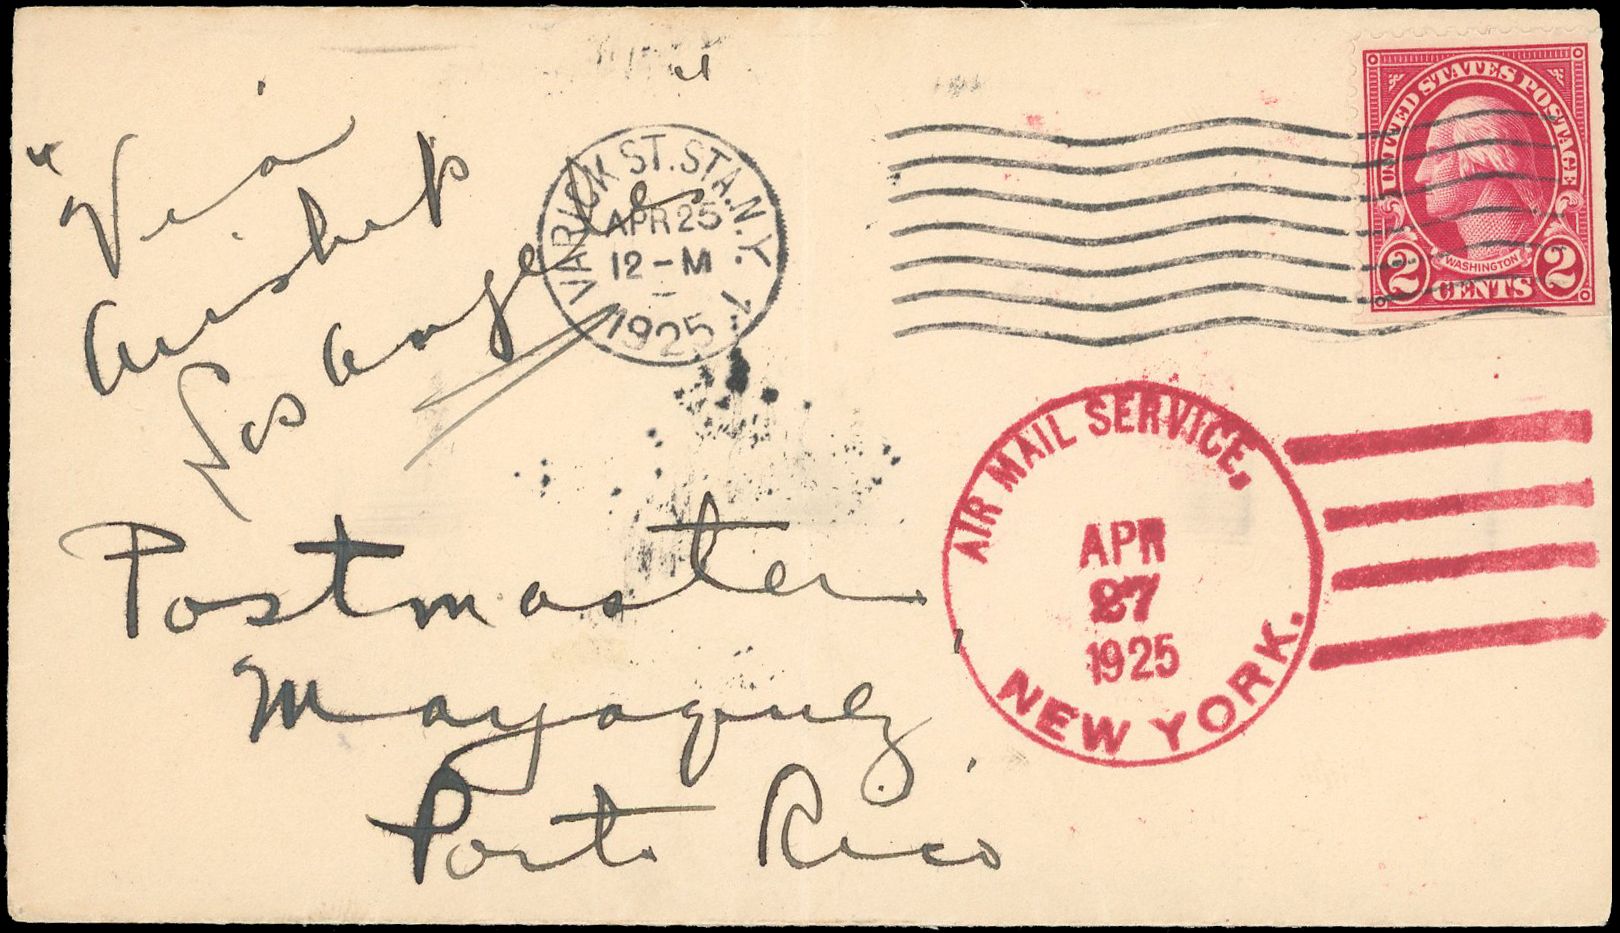 "Via
Airship
Los Angeles
VARICK ST. STA. N.Y.
APR 25
12-M
1925
UNITED STATES POSTAGE
WASHINGTON
2 CENTS 2
AIR MAIL SERVICE,
APR
27
1925
NEW YORK.
Postmaster,
Mayaguez,
Porto Rico